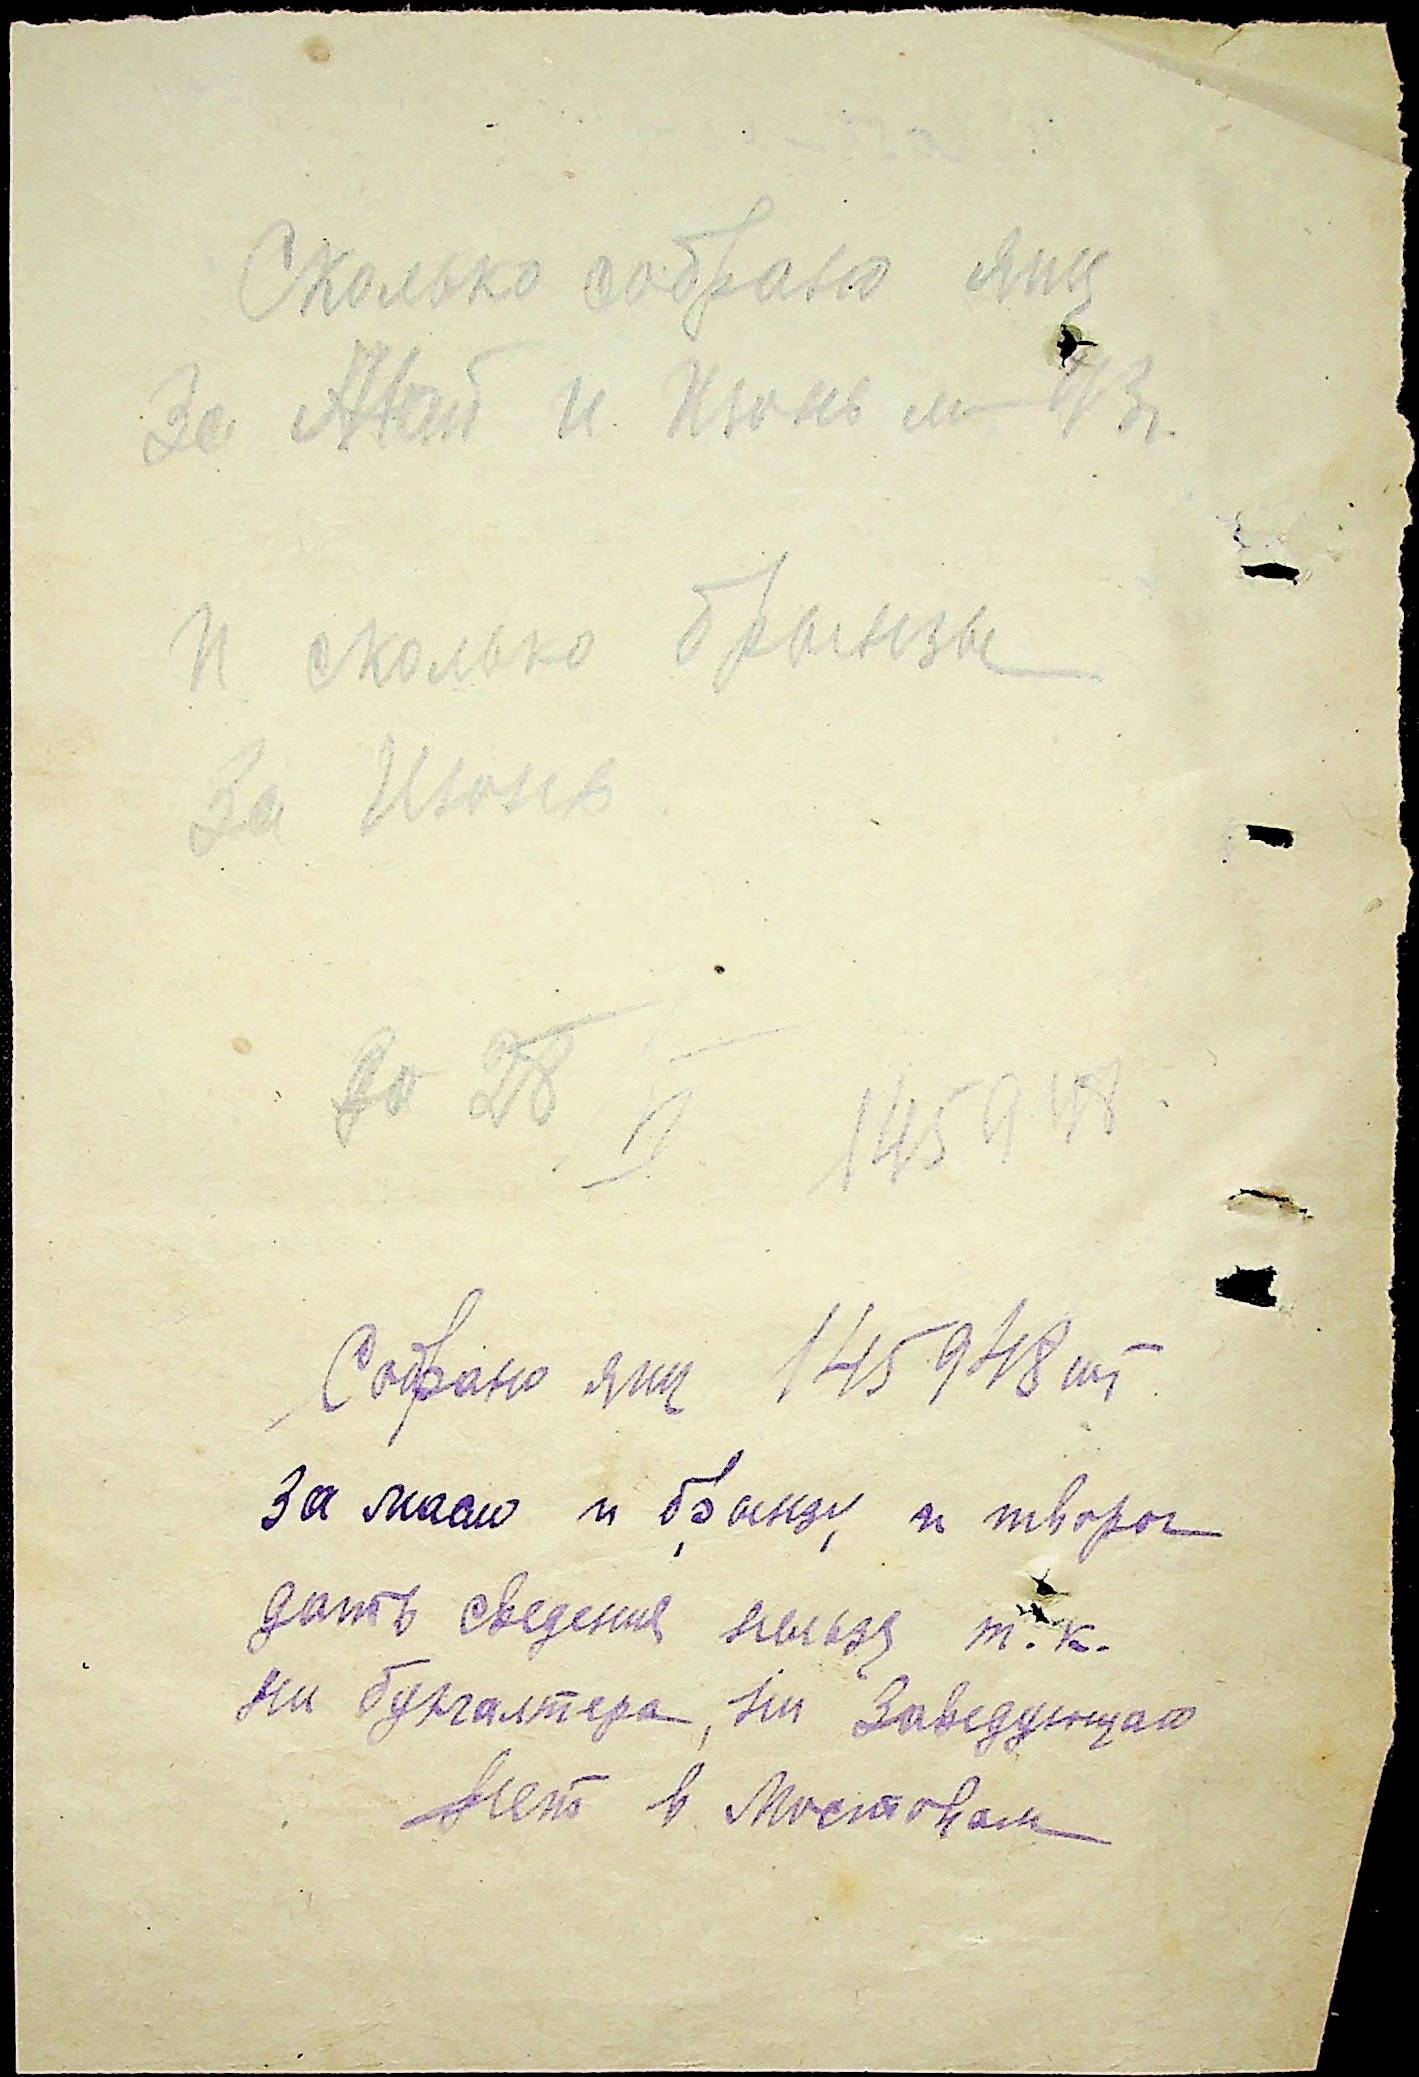 Сколько собрано яиц
За Май и Июнь м-ц 43г.
И сколько брынзы
За Июнь
До 28/VI. 145948.
Собрано яиц 145948 шт.
За масло и брынзу и творог
дать сведения нельзя т.к.
ни бухгалтера, ни Заведующего
Нет в Мостовом